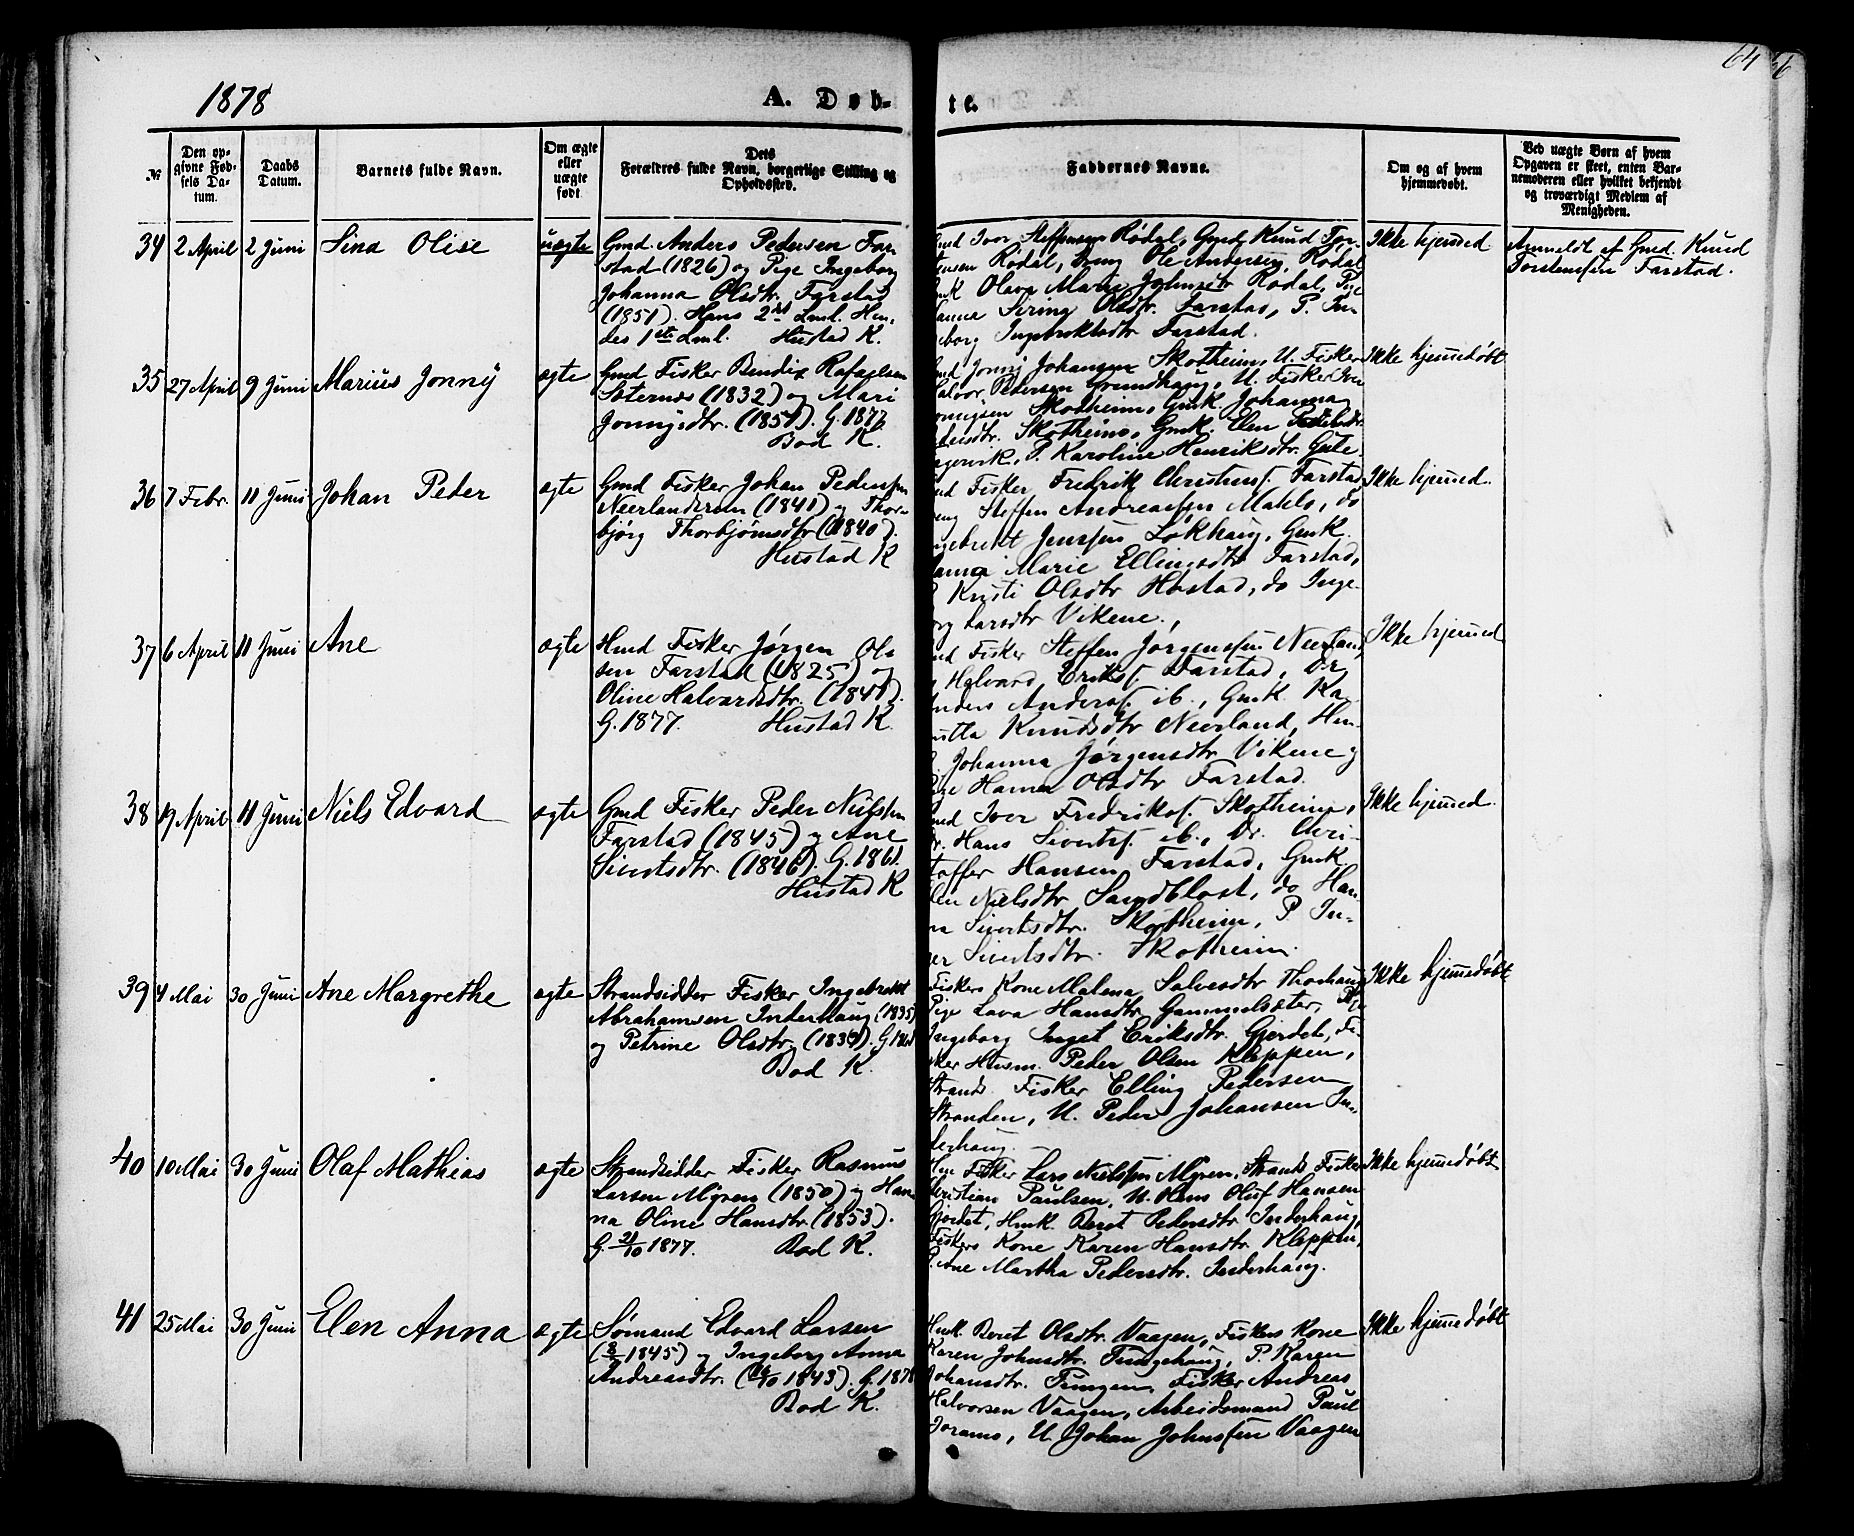 64
56
1878
A. Døb-
te.
№
Den op-
givne Fød-
sels Da-
tum.
Daabs
Datum.
Barnets fulde Navn.
Om ægte
eller
uægte
født.
Dets
Forældres fulde Navn, borgerlige Stilling og
Opholdssted.
Faddernes Navne.
Om og af hvem
hjemmedøbt.
Ved uægte Børn af hvem
Opgaven er skeet, enten Bar-
nemoderen eller hvilket bekjendt
og troværdigt Medlem af
Menigheden.
34 2 April 2 Juni Sina Olise uægte
Gmd. Anders Pedersen Far-
stad (1826) og Pige Ingeborg
Johanna Olsdtr. Farstad
(1851). Hans 2det Lml. Hen-
des 1ste Lml. Hustad K.
Iver Steffensen Rødal, Gmd. Knud Tor-
stensen Rødal, Ung Ole Andersen, Rødal
Olava Marie Johnsdtr Rødal, Pige
Sirina Olsdtr. Farstad, P. In-
eborg Ingebriktsdtr Farstad.
Ikke hjemmed.
Anmeldt af Gmd. Knud
Torstensen Farstad.
35 27 April 9 Juni Marius Jonny ægte
Gmd Fisker Bendix Rafaelsen
Sæternæs (1832) og Mari
Jonnysdtr. (1851). G. 1877
Bod K.
Jonny Johansen Skotheim, U. Fisker
Halvor Pedersen Grundhaug, U. Fisker Iver
Skotheim, Gmk. Johanna
Skotheim, Gmk. Elen
P. Karoline Henriksdtr. Gule
Ikke hjemmedøbt
36 7 Febr. 11 Juni Johan Peder ægte
Gmd Fisker Johan Pedersen
Neerlandsrem (1841) og Thor-
bjørg Thorbjørnsdtr (1840).
Hustad K
Fisker Fredrik Christens. Farstad
Steffen Andreassen Mahlo, do
ngebrikt Jenssen Løkhaug, Gmk.
Marie Ellingsdtr Farstad,
Kristi Olsdtr Hostad, do Inge-
org Larsdtr Vikene.
Ikke hjemmed.
37 6 April 11 Juni Ane ægte
Hmd Fisker Jørgen Ol-
sen Farstad (1825) og
Oline Halvardsdtr. (1841).
G. 1877. Hustad K
Fisker Steffen Jørgensen Neerland,
Halvard Eriks. Farstad, Dr
Anders Anders. ib., Gmk. Ka-
Knudsdtr Neerland, Hm-
Johanna Jørgensdtr Vikene og
Pige Hanna Olsdtr Farstad.
Ikke hjemmed
38 19 April 11 Juni Niels Edvard ægte
Gmd Fisker Peder Nielsen
Farstad (1845) og Ane
Sivertsdtr. (1846). G. 1861.
Hustad K
Iver Fredriks. Skotheim,
Hans Siverts. ib., Dr. Chri-
stoffer Hansen Farstad, Gmk.
Nielsdtr Sandblost, do Han-
na Sivertsdtr. Skotheim, P. In-
ger Sivertsdtr. Skotheim.
Ikke hjemmed.
39 4 Mai 30 Juni Ane Margrethe ægte
Strandsidder Fisker Ingebrikt
Abrahamsen Inderhaug (1835)
og Petrine Olsdtr. (1839). G. 1861
Bod K.
Fiskers Kone Malena Salvesdtr Thorhaug,
Pige Lava Hansdtr. Gammelsæter, Pige
Ingeborg Ingst Eriksdtr. Gjerdet, Fi-
sker Husm. Peder Olsen Kleppen,
Strands. Fisker Elling Pedersen
Stranden, U. Peder Johansen In-
derhaug
Ikke hjemmedøbt
40 10 Mai 30 Juni Olaf Mathias ægte
Strandsidder Fisker Rasmus
Larsen Myren (1850) og Han-
na Oline Hansdtr. (1853).
G. 21/10 1877. Bod K.
Hm Fisker Lars Nielssen Myren, Strands. Fisker
Christian Paulsen, U. Hans Oluf Hansen
Gjerdet, Hmk. Beret Pedersdtr Inderhaug,
Fiskers Kone Karen Hansdtr. Kleppen,
Pigerne Martha Pedersdtr. Inderhaug.
Ikke hjemmedøbt
41 25 Mai 30 Juni Elen Anna ægte
Sømand Edvard Larsen
1845) og Ingeborg Anna
Andreasdtr. 1843). G. 1878
Bod K.
Hmk. Beret Olsdtr. Vaagen, Fiskers Kone
Karen Johnsdtr. Tungehaug, P. Karen
Johansdtr. Tungen, Fisker Andreas
Halvorsen Vaagen, Arbeidsmand Paul
Jorams, U. Johan Johnssen Vaagen
Ikke hjemmedøbt